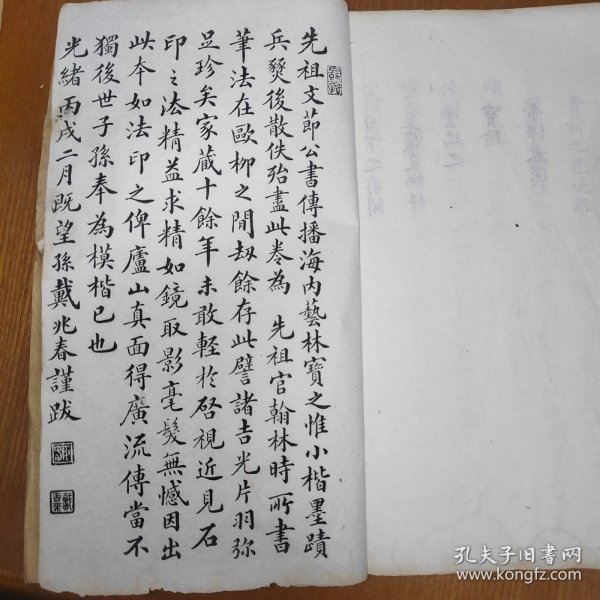 先祖文莭公書傳播海內藝林寶之惟小楷墨蹟
兵燹後散佚殆盡此卷為 先祖官翰林時所書
筆法在歐柳之間刼餘存此譬諸吉光片羽弥
足珍矣家藏十餘年未敢輕於啓視近見石
印之法精益求精如鏡取影毫髮無憾因出
此本如法印之俾廬山真面得廣流傳當不
獨後世子孫奉為模楷已也
光緒丙戌二月既望孫戴兆春謹跋
孔夫子旧书网
www.kongfz.com